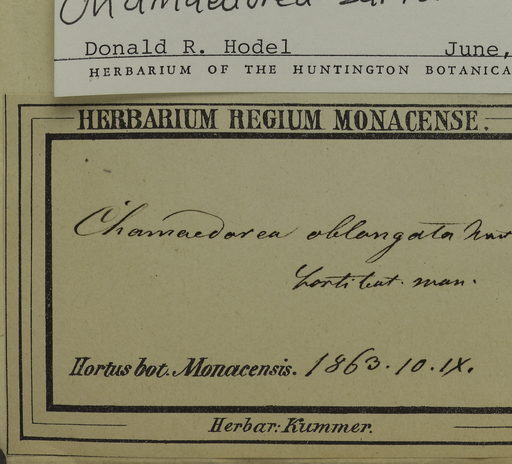 Chamaedorea
Donald R. Hodel June,
HERBARIUM OF THE HUNTINGTON BOTANICA
HERBARIUM REGIUM MONACENSE.
Chamaedorea oblongata
horti bot. mon.
Hortus bot. Monacensis. 1863.10.IX.
Herbar: Kummer.